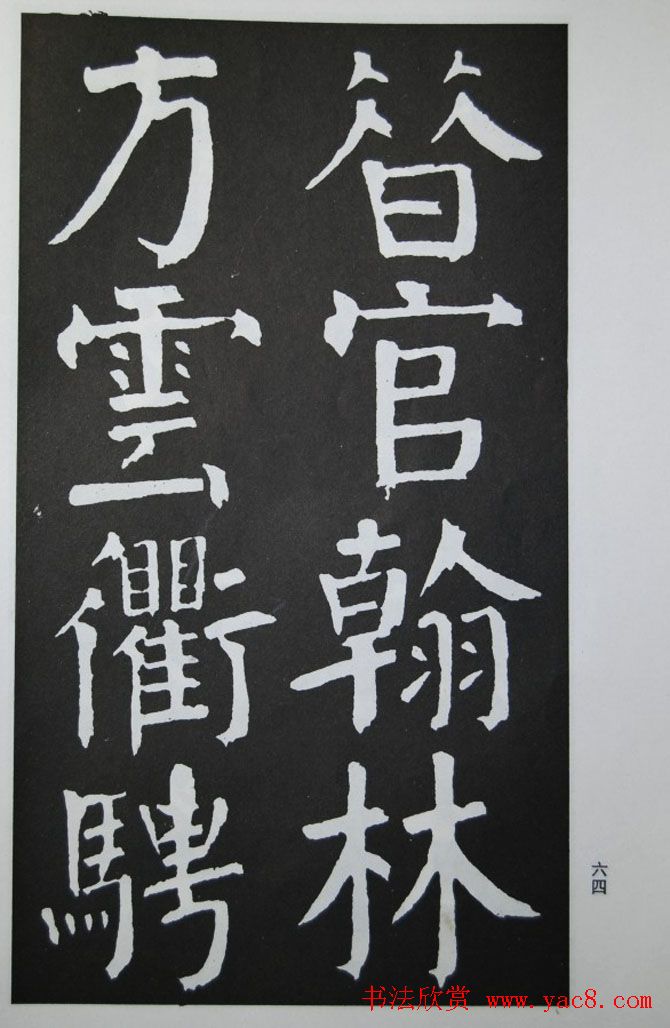 官翰林
方雲衢騁
六四
书法欣赏 www.yac8.com